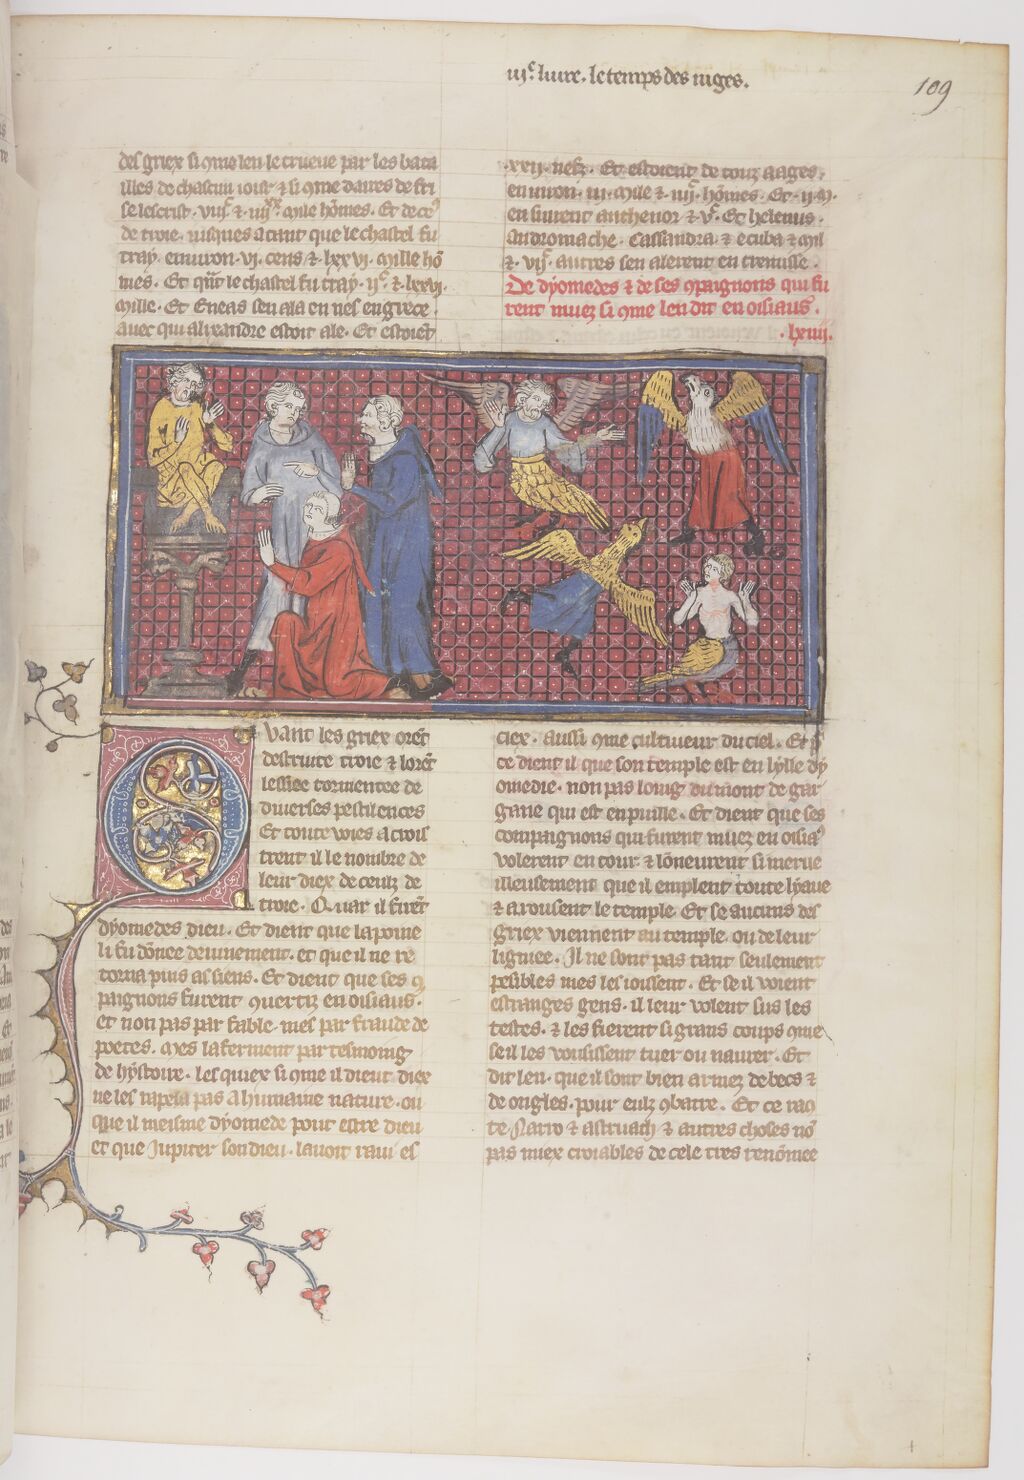 iijᵉ. liure. le temps des iuges.
109
des griex si ꝯme len le trueue par les bata
illes de chascun iour ⁊ si ꝯme daires de fri
se lescrist. viijᶜ. ⁊ iiijˣˣ. mille hōmes. Et de ceꝰ
de troie. iusques a tant que le chastel fu
tray. enuiron. vi. cens ⁊. lxxvi. mille hō
mes. Et qn̄t le chastel fu tray. ijᶜ. ⁊. lxxvi.
mille. Et Eneas sen ala en nes en grece.
auec qui alixandre estoit ale. Et estoiēt
.xxij. nefz. Et estoient de touz aages.
enuiron. iij. mille ⁊. iiijᶜ. hōmes. Et. ij. m.
en siuirent anthenor ⁊. vᶜ. Et helenus.
andromache. Cassandra. ⁊ ecuba ⁊ mil
⁊. vijᶜ. autres sen alerent en
De dyomedes ⁊ de ses ꝯpaignons qui fu
rent muez si ꝯme len dit en oisiaus.
.lxiiij.
Quant les griex orēt
destruite troie ⁊ lorēt
lessiee tormentee de
diuerses pestilences
Et toute uoies a crois
trent il le nombre de
leur diex de ceulz de
troie. Quar il firēt
dyomedes dieu. Et dient que la poine
li fu dōnee deuinement. et que il ne re
torna puis as siens. Et dient que ses ꝯ
paignons furent ꝯuertiz en oisiaus.
et non pas par fable. mes par fraude de
poetes. mes lafferment par tesmoing
de hystoire. les quiex si ꝯme il dient diex
ne les rapela pas a humaine nature. ou
que il meisme dyomede pour estre dieu
et que Jupiter son dieu. lauoit raui es
ciex. aussi ꝯme cultiueur du ciel. Et si
ce dient il que son temple est en lylle dy
omedie. non pas loing du mont de gar
gane qui est en puille. Et dient que ses
compaignons qui furent muez en oisiaꝰ
volerent en tour. ⁊ lōneurent si merue
illeusement que il emplent toute lyaue
⁊ arousent le temple. Et se aucuns des
griex viennent au temple. ou de leur
ligniee. Il ne sont pas tant seulement
pesibles mes les ioissent. Et se il voient
estranges gens. il leur volent sus les
testes. ⁊ les fierent si grans coups ꝯme
se il les vousissent tuer ou naurer. Et
dit len. que il sont bien armez de becs ⁊
de ongles. pour eulz ꝯbatre. Et ce raꝯ
te ⁊ autres choses nō
pas miex croiables de cele tres renōmee